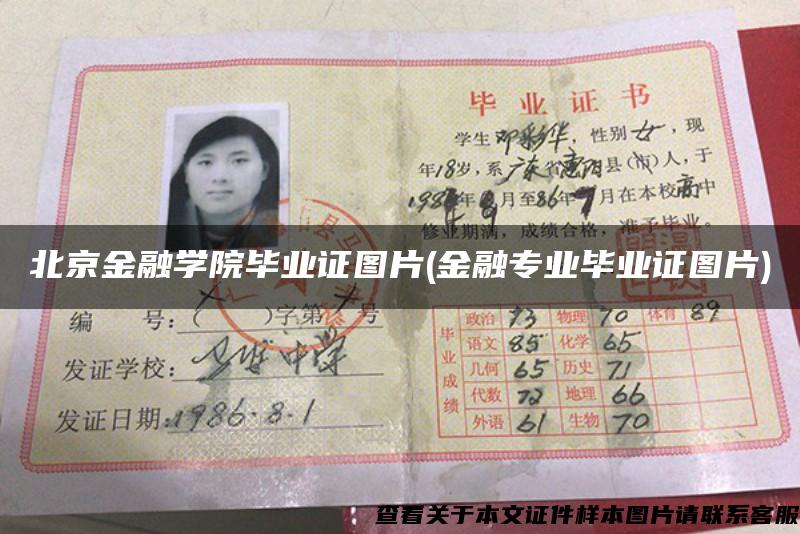 毕业证书
学生邓彩华，性别女，现
年18岁，系广东省惠阳县(市)人，于
1983年9月至86年7月在本校高中
修业期满，成绩合格，准予毕业。
北京金融学院毕业证图片(金融专业毕业证图片)
编 号：( )字第 号
发证学校：
中学
发证日期：1986.8.1
毕业成绩
政治 73 物理 70 体育 89
语文 85 化学 65
几何 65 历史 71
代数 72 地理 66
外语 61 生物 70
查看关于本文证件样本图片请联系客服